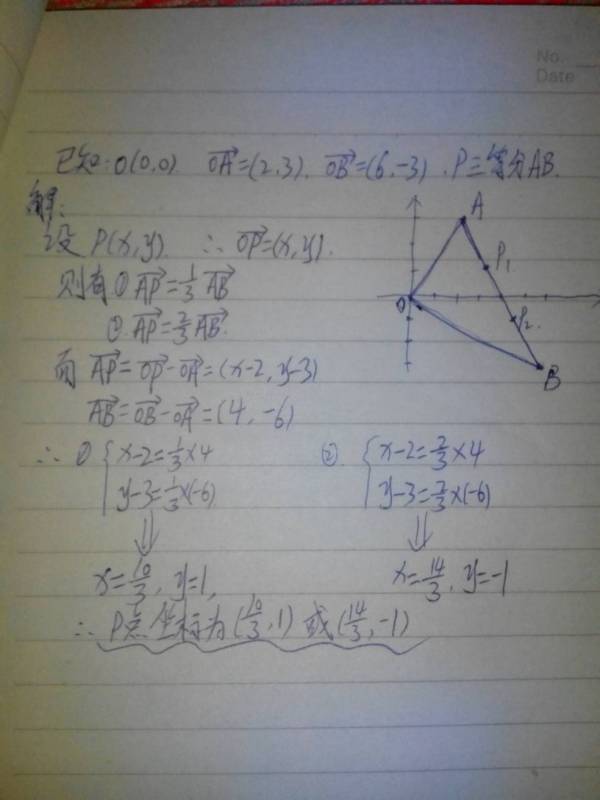 No.
Date
已知:O(0,0) OA→=(2,3), OB→=(6,-3),P三等分AB.
解:
设P(x,y) ∴OP→=(x,y).
则有①AP→=1/3AB→
②.AP→=2/3AB→.
而AP→=OP→-OA→=(x-2,y-3)
AB→=OB→-OA→=(4,-6)
∴ ① { x-2=1/3×4 ② { x-2=2/3×4
y-3=1/3×(-6) y-3=2/3×(-6)
⇓ ⇓
x=10/3, y=1, x=14/3, y=-1
∴P点坐标为(10/3,1)或(14/3,-1)
A
P₁
O
P₂
B